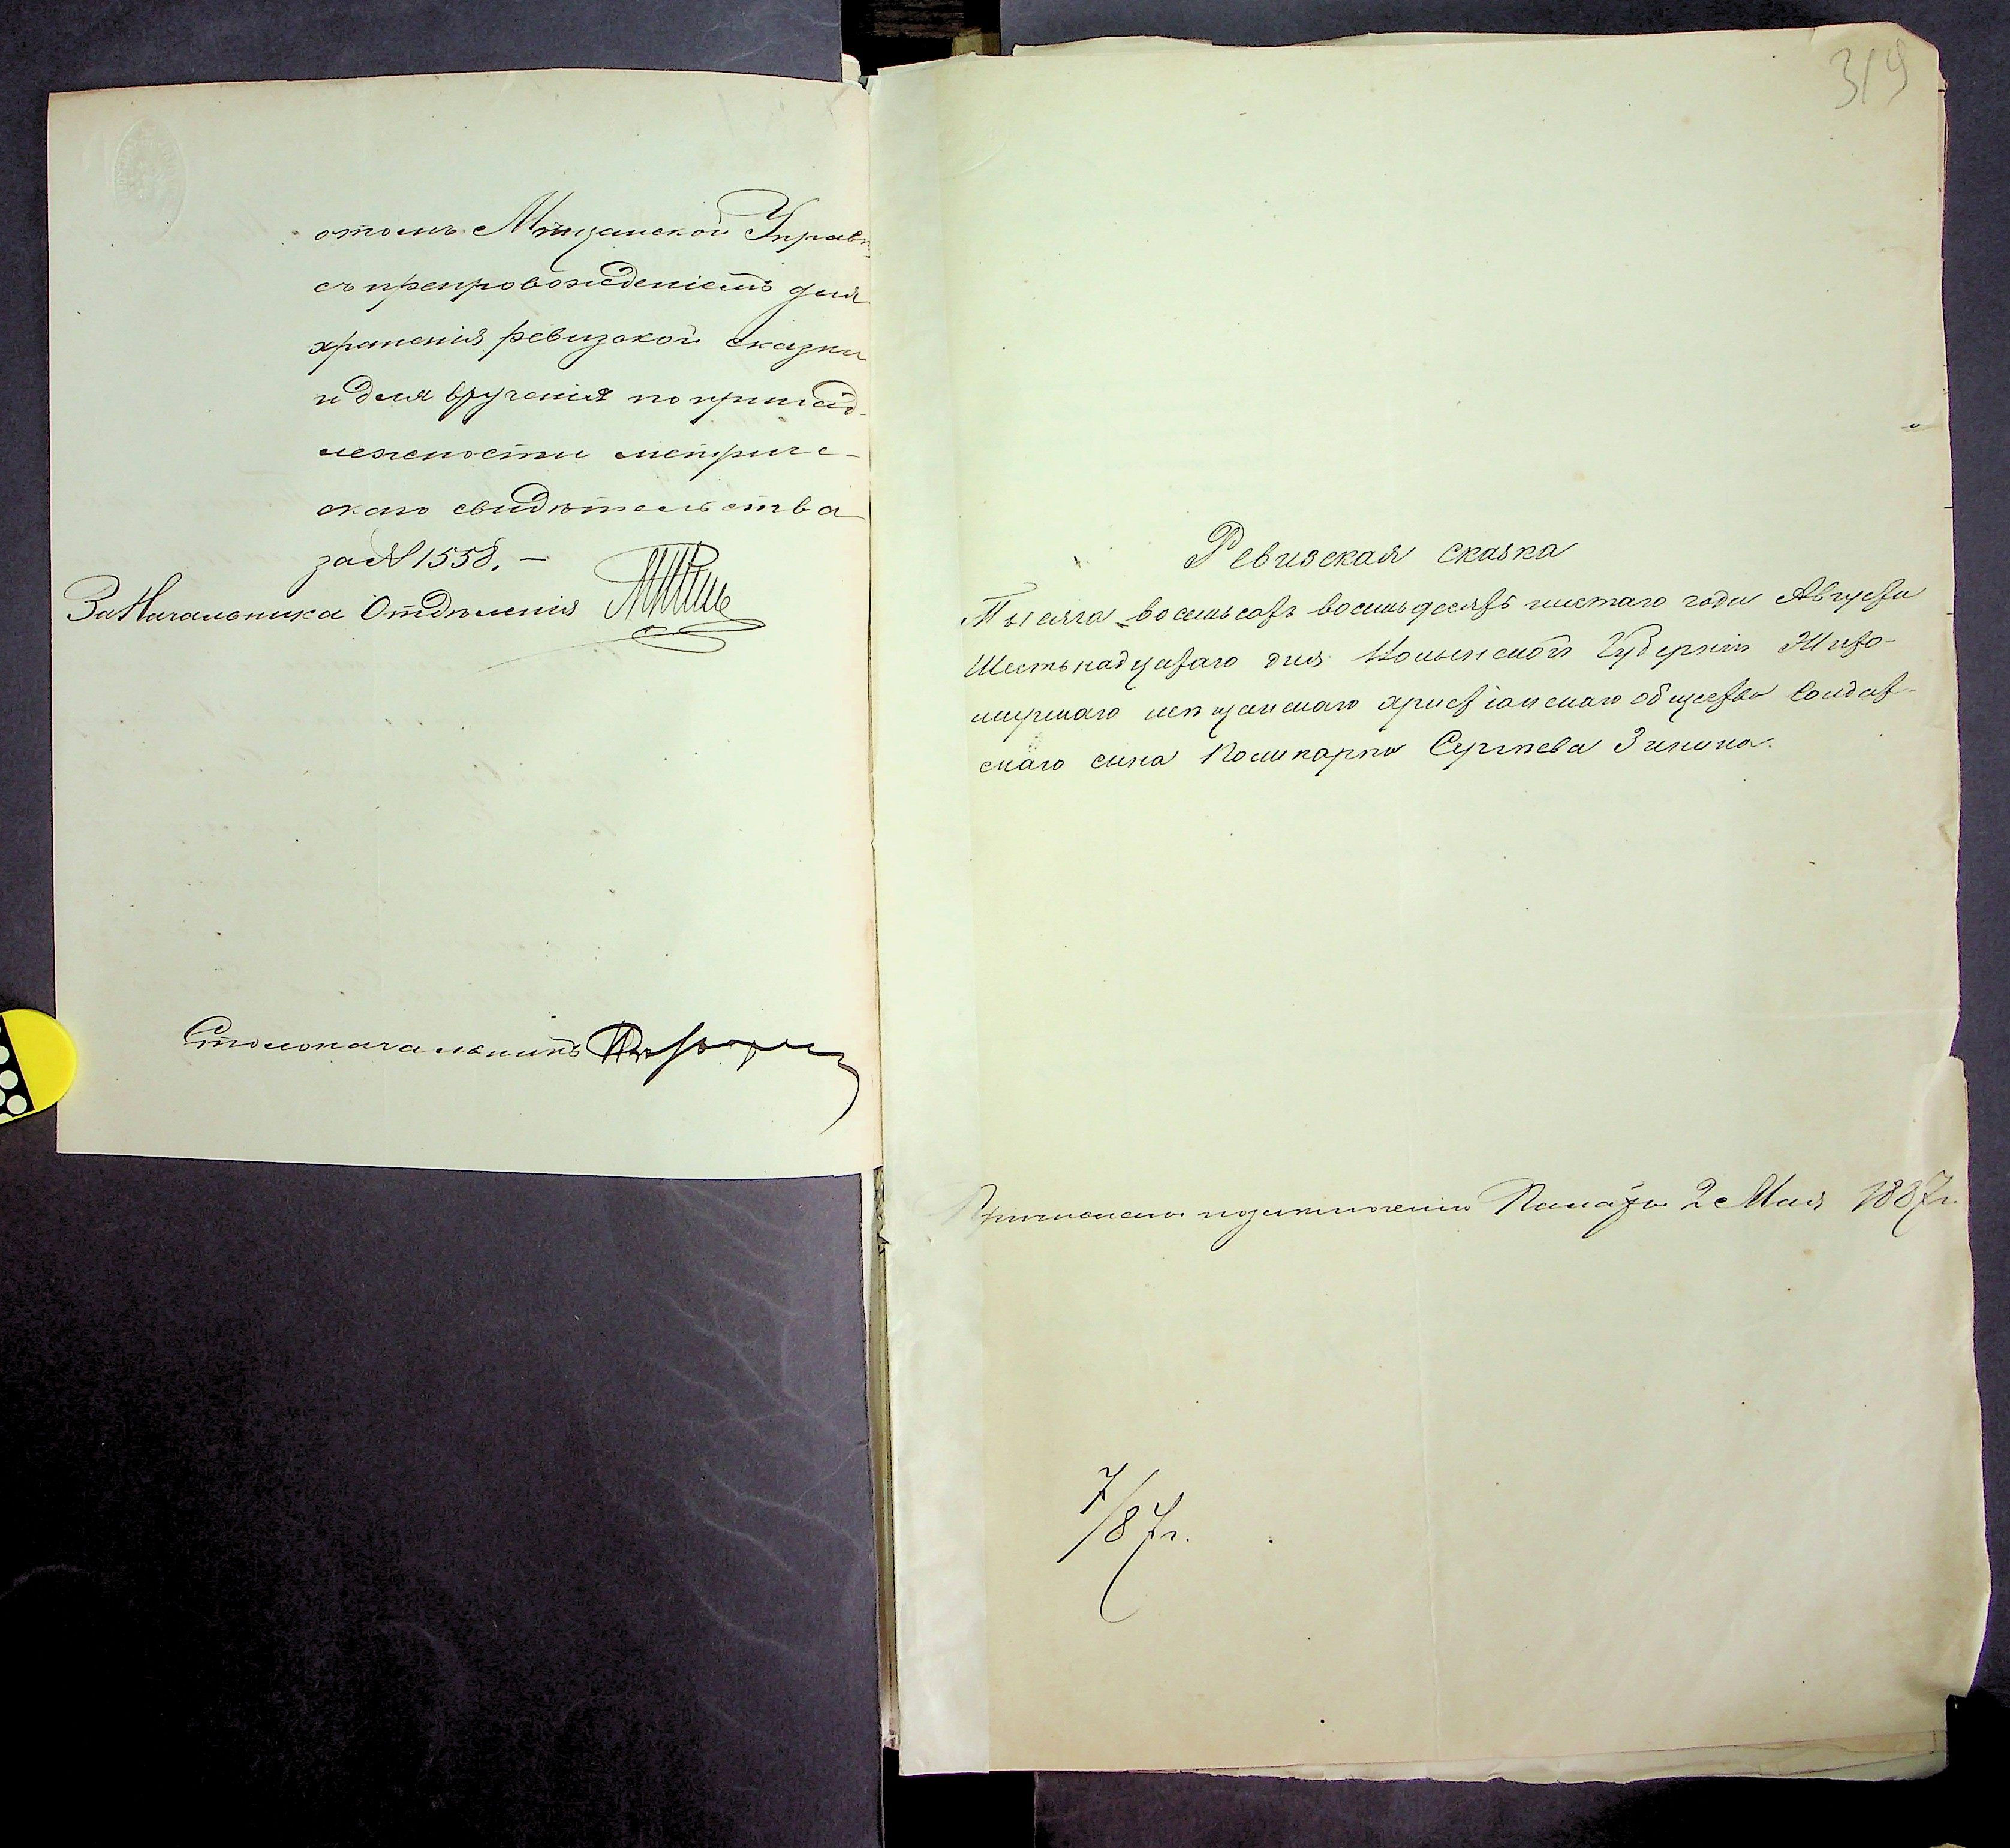 отомъ Мѣщанской Управѣ
съ препровожденіемъ для
храненія ревизской сказки
и для врученія по принад-
лежности метриче-
скаго свидѣтельства
за № 1558. —
За Начальника Отдѣленія
Столоначальникъ
319
Ревизская сказка
Тысяча восемьсотъ восемьдесятъ шестаго года Августа
Шестьнадцатаго дня Волынской Губерніи Жито-
мирскаго мѣщанскаго христіанскаго общества Солдат-
скаго сына Поликарпа Сергѣева Зинина.
Причислены по заключенію Палаты 2 Мая 1887 г.
7/87 г.